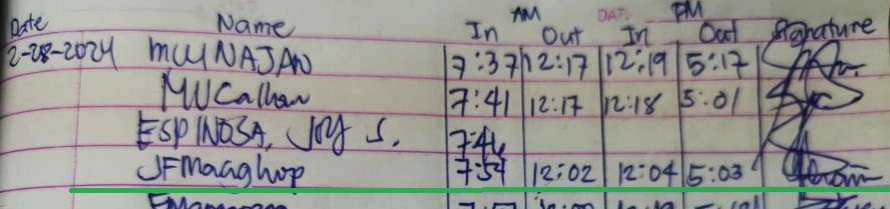 AM PM
Date Name In Out In Out Signature
2-28-2024 MWNAJAN 7:37 12:17 12:19 5:17
MVCalhan 7:41 12:17 12:18 5:01
ESPINOSA, JOY S. 7:46
JFMaaghop 7:54 12:02 12:04 5:03